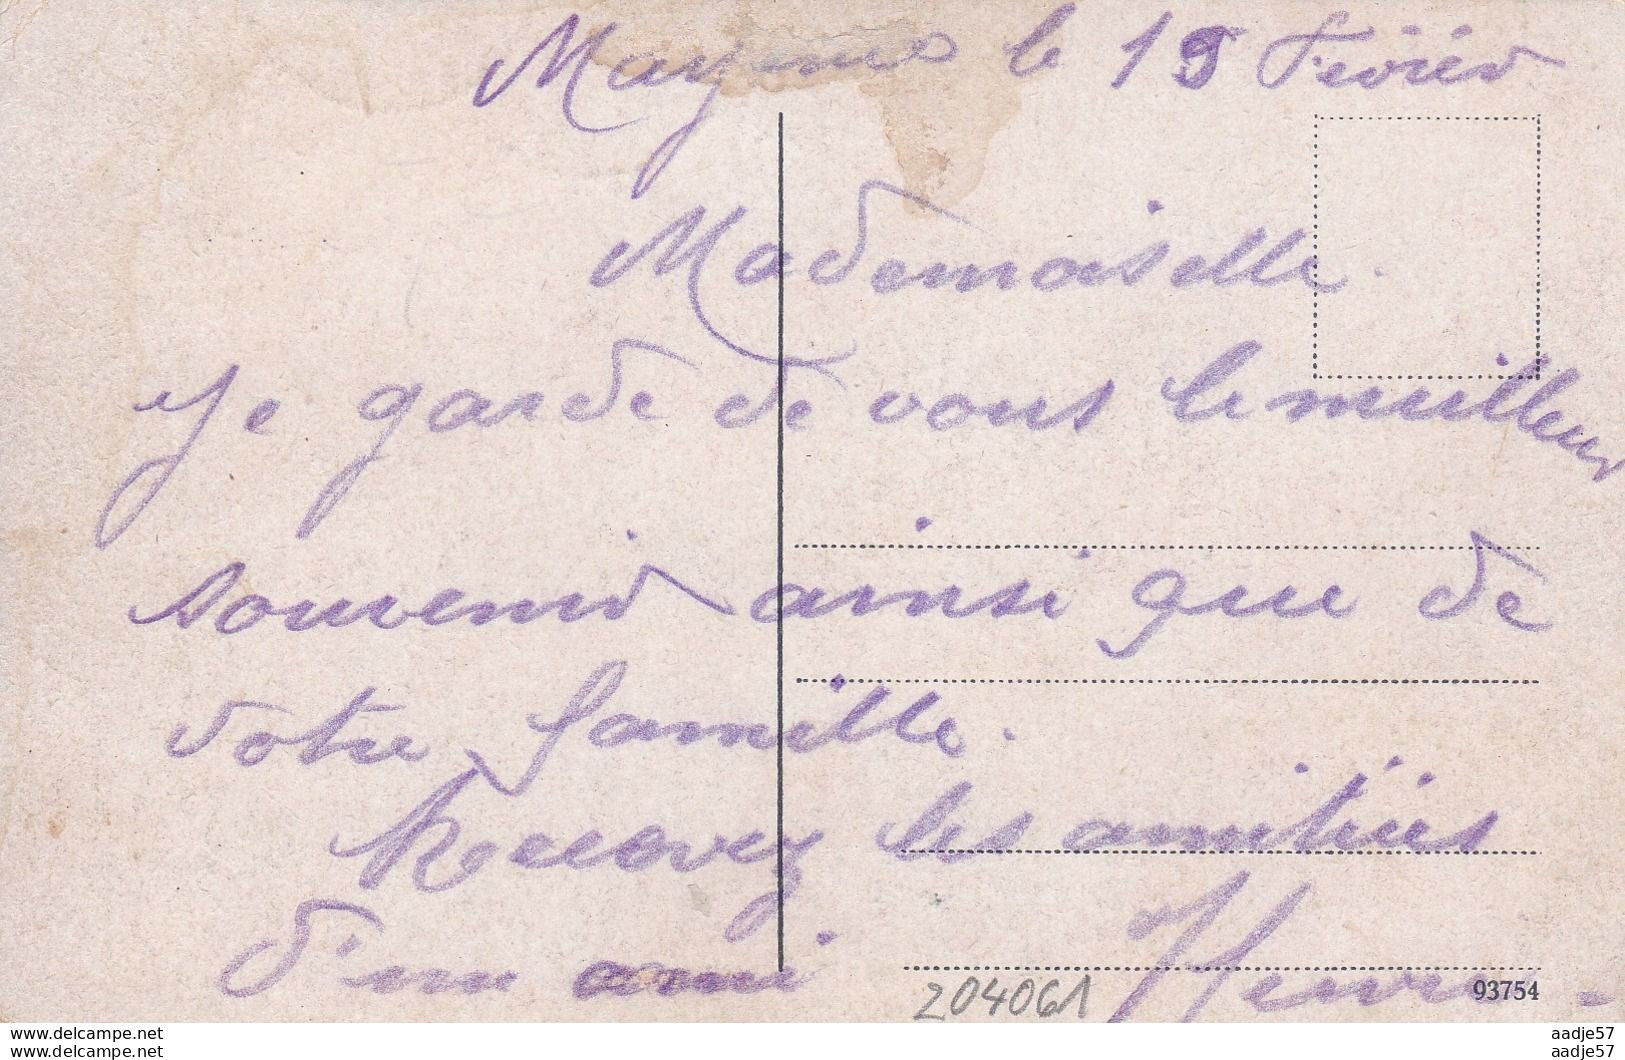 Mayence le 19 Février
Mademoiselle.
Je garde de vous le meilleur
souvenir ainsi que de
votre famille.
Recevez les amitiés
d'un ami Henri -
204061
93754
www.delcampe.net aadje57
www.delcampe.net aadje57